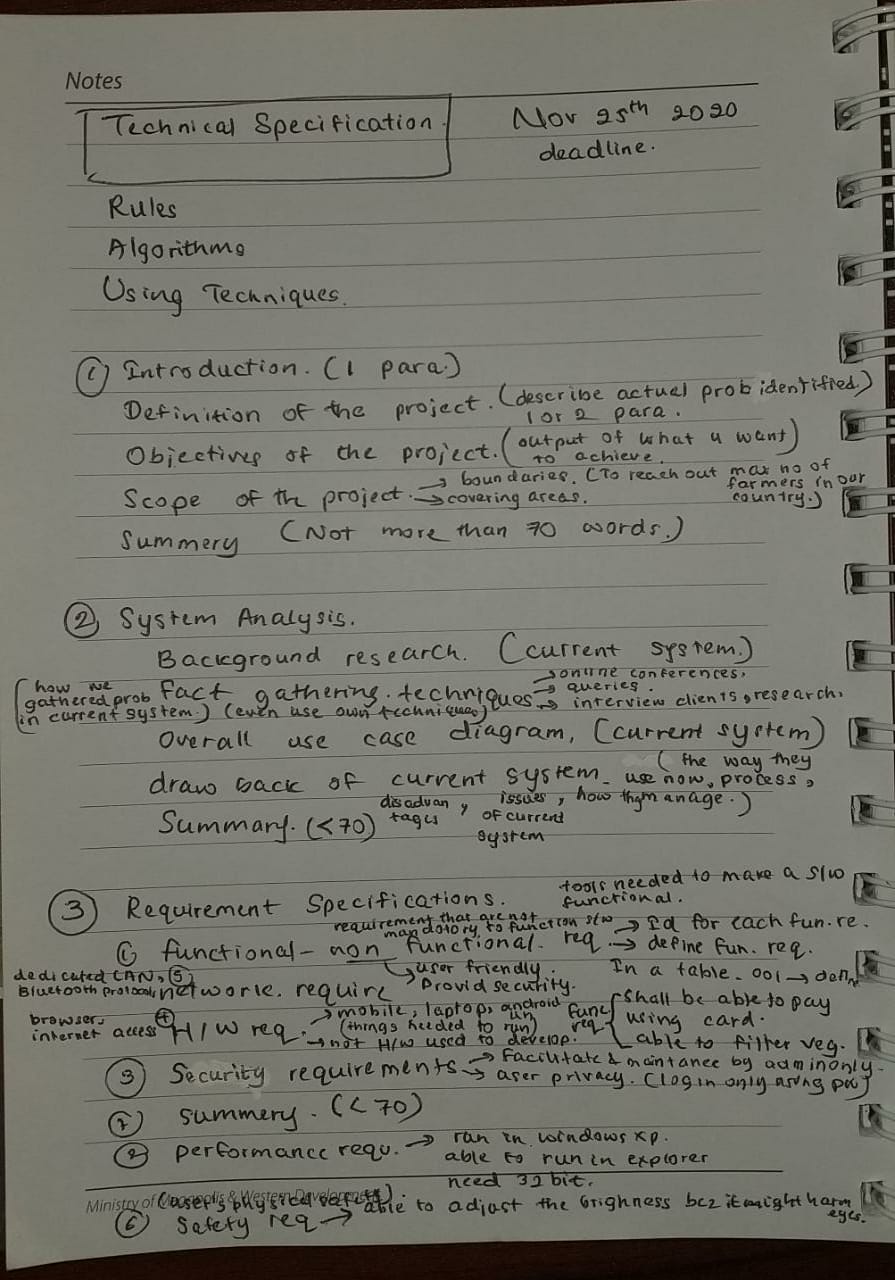 Notes
Technical Specification.
Nov 25th 2020
deadline.
Rules
Algorithms
Using Techniques.
① Introduction. (1 para.)
Definition of the project. (describe actual prob identified.)
1 or 2 para.
Objectives of the project. (output of what u want)
to achieve.
Scope of th project. → boundaries. (To reach out max no of
→ covering areas. farmers in our
country.)
Summery (Not more than 70 words.)
② System Analysis.
Background research. (current system.)
(how we
gathered prob
in current system.)
Fact gathering. techniques → online conferences,
→ queries.
→ interview clients, research,
(even use own techniques)
Overall use case diagram, (current system)
(the way they
draw back of current system_ use now, process,
issues, how thy manage.)
Summary. (<70) disadvan
tages, of current
system
③ Requirement Specifications. tools needed to make a s/w
functional.
requirement that are not
mandotory to function s/w
① functional - non functional. req. → Id for each fun. re.
→ define fun. req.
→ user friendly. In a table. 001 →
Provid security.
dedicated LAN, ⑤
Bluetooth protocol, network. require
browser,
internet access ④ H/W req. → mobile, laptop, android
(things needed to run)
→ not H/w used to develop.
func
req { Shall be able to pay
using card.
able to filter veg.
③ Security requirements → Facilitate & maintance by admin only.
→ user privacy. (log in only using pw)
⑦ summery. (<70)
② performance requ. → run in windows xp.
able to run in explorer
need 32 bit.
Ministry of & Western Development
(user's physical safety).
⑥ Safety req → able to adjust the brighness bcz it might harm
eyes.